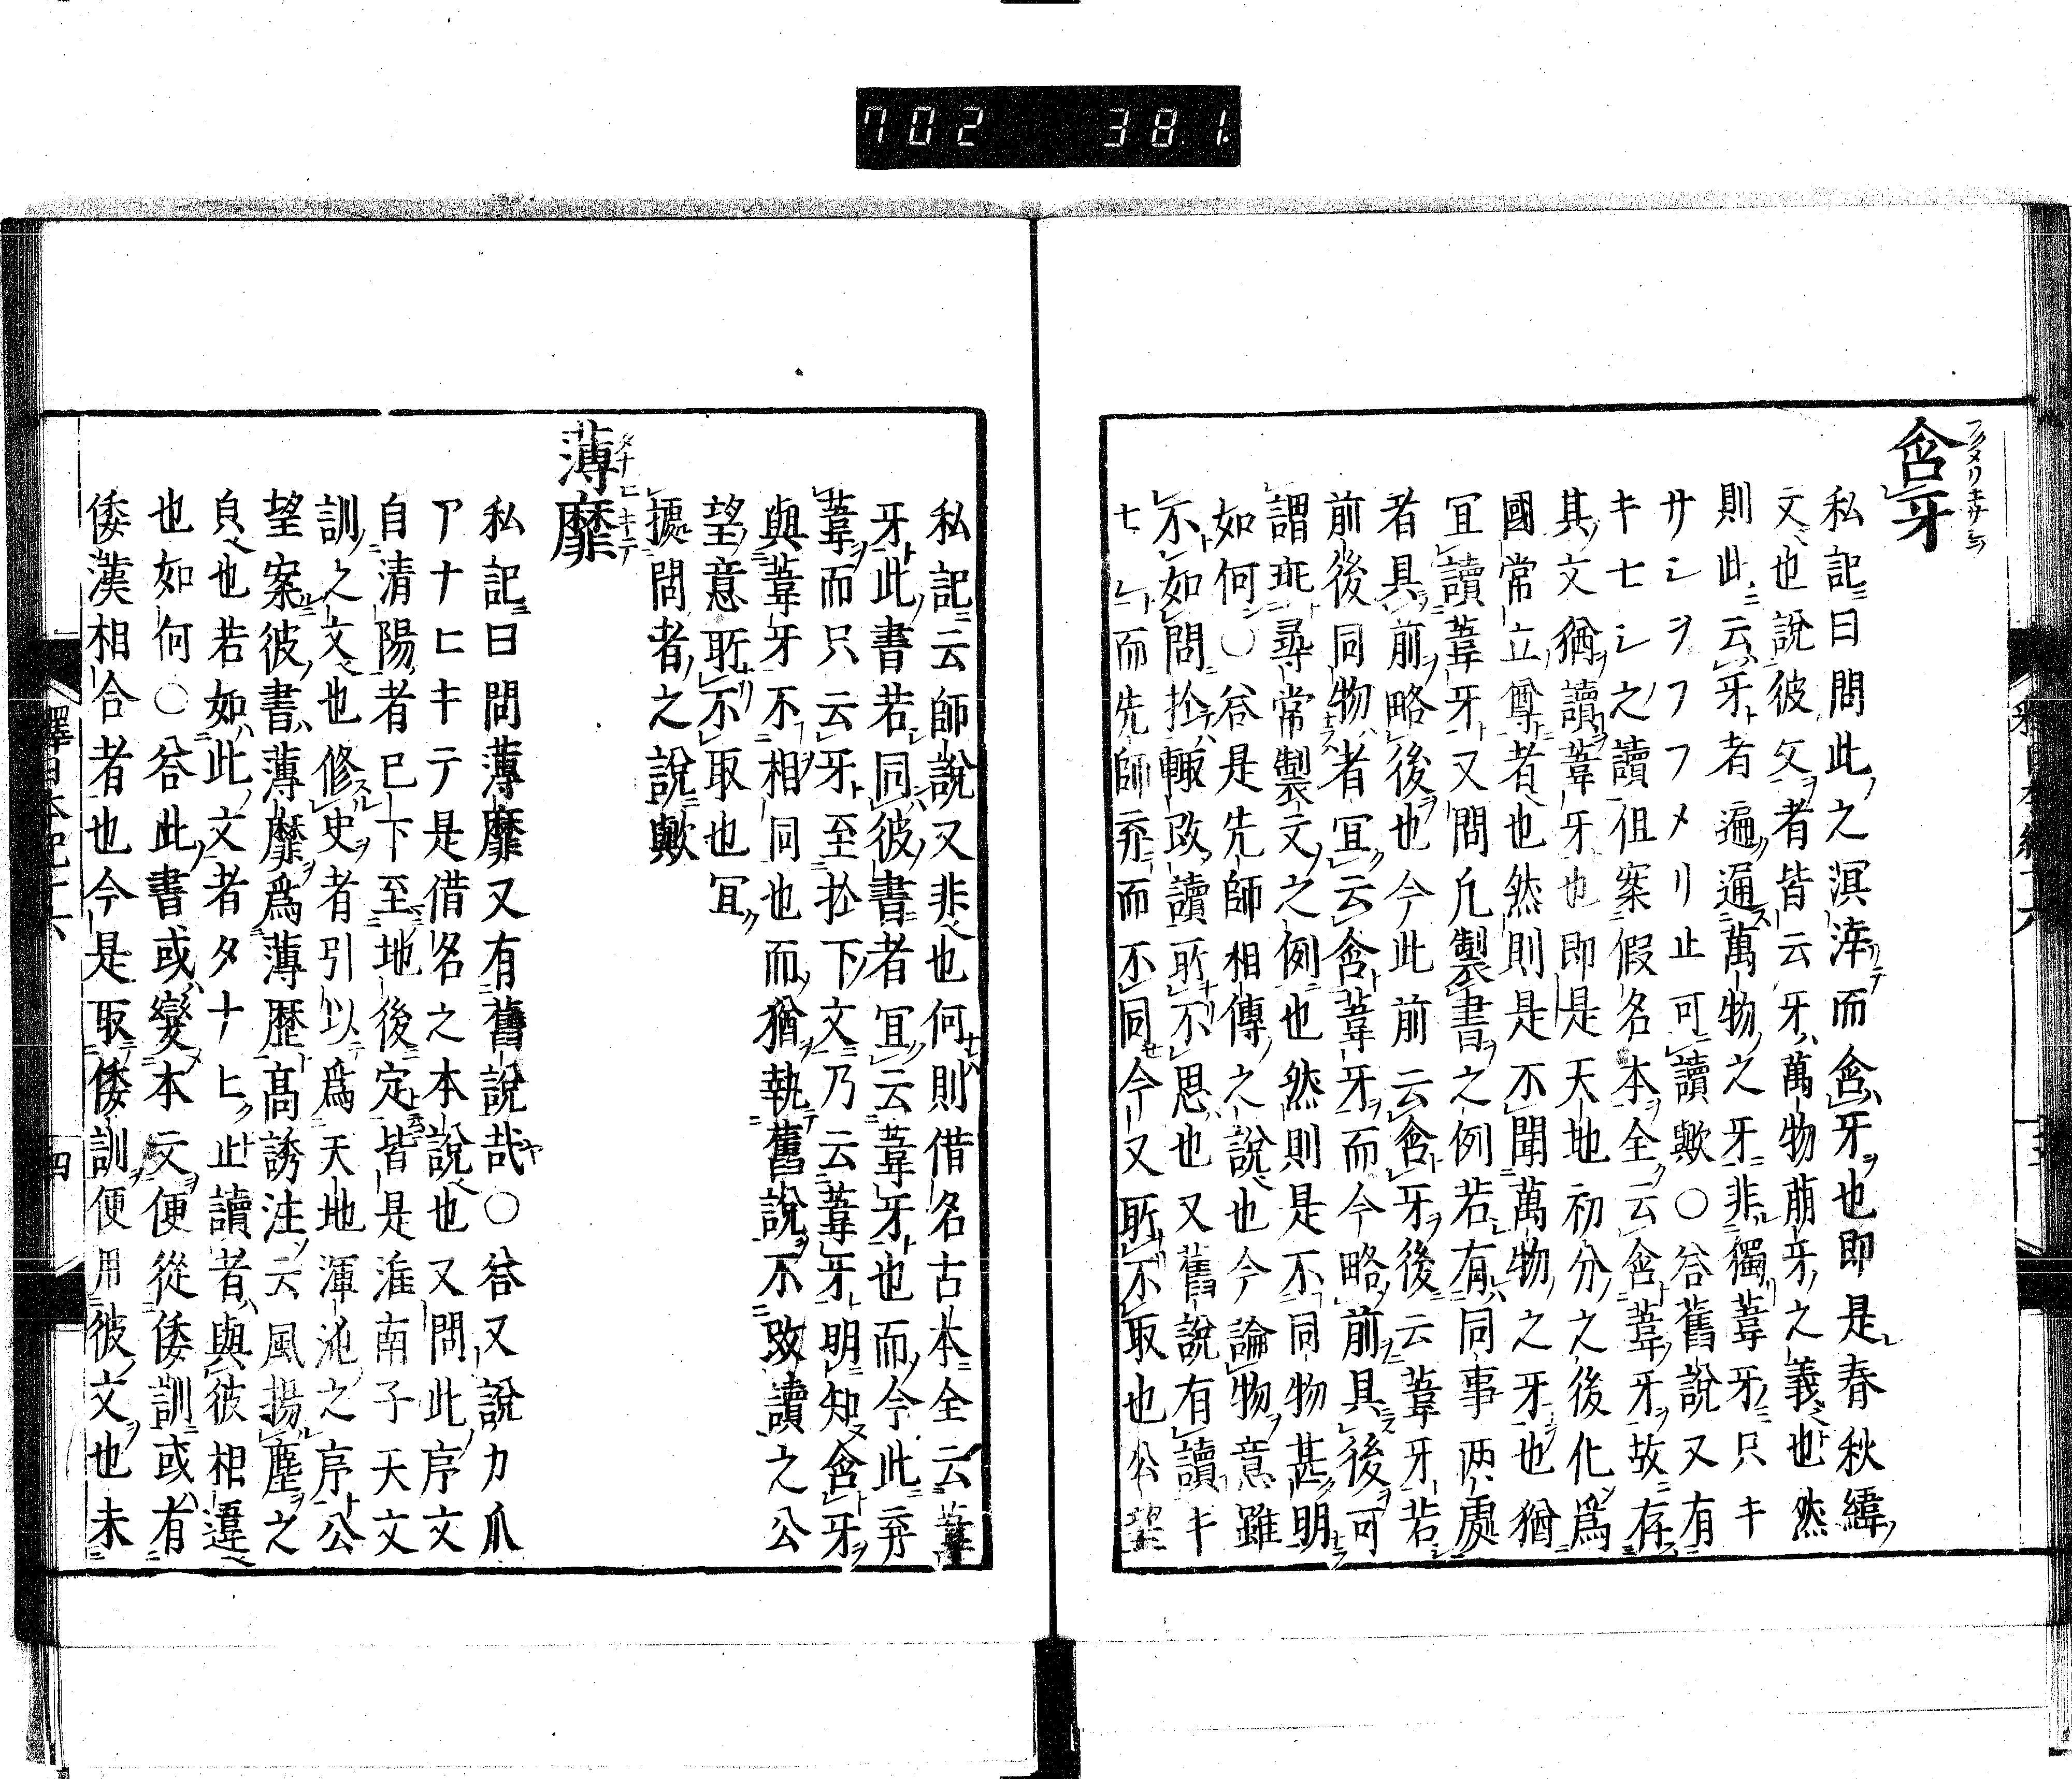 702 381
含牙
フクメリキサシヲ
私記曰問此之溟涬而含牙也即是春秋緯
文也說彼文者皆云牙萬物萠牙之義也然
則此云牙者遍通萬物之牙非獨葦牙只キ
サシヲフフメリ止可讀歟〇答舊說又有
キセシ之讀但案假名本全云含葦牙故存
其文猶讀葦牙也即是天地初分之後化爲
國常立尊者也然則是不聞萬物之牙也猶
冝讀葦牙又問凡製書之例若有同事两處
者具前略後也今此前云含牙後云葦牙若
前後同物者冝云含葦牙而今略前具後可
謂乖尋常製文之例也然則是不同物甚明
如何〇答是先師相傳之說也今論物意雖
不如問扵輙改讀所不思也又舊說有讀キ
セ而先師弃而不同今又所不取也公望
私記云師說又非也何則借名古本全云葦
牙此書若同彼書者冝云葦牙也而今此弃
葦而只云牙至扵下文乃云葦牙明知含牙
與葦牙不相同也而猶執舊說不改讀之公
望意所不取也冝
據問者之說歟
薄靡
タナヒキテ
私記曰問薄靡又有舊說哉〇答又說カ爪
アナヒキテ是借名之本說也又問此序文
自清陽者已下至地後定皆是淮南子天文
訓之文也修史者引以爲天地渾沌之序公
望案彼書薄靡爲薄歷高誘注云風揚塵之
㒵也若如此文者タナヒ止讀者與彼相違
也如何〇答此書或變本文便從倭訓或有
倭漢相合者也今是取倭訓便用彼文也未
四